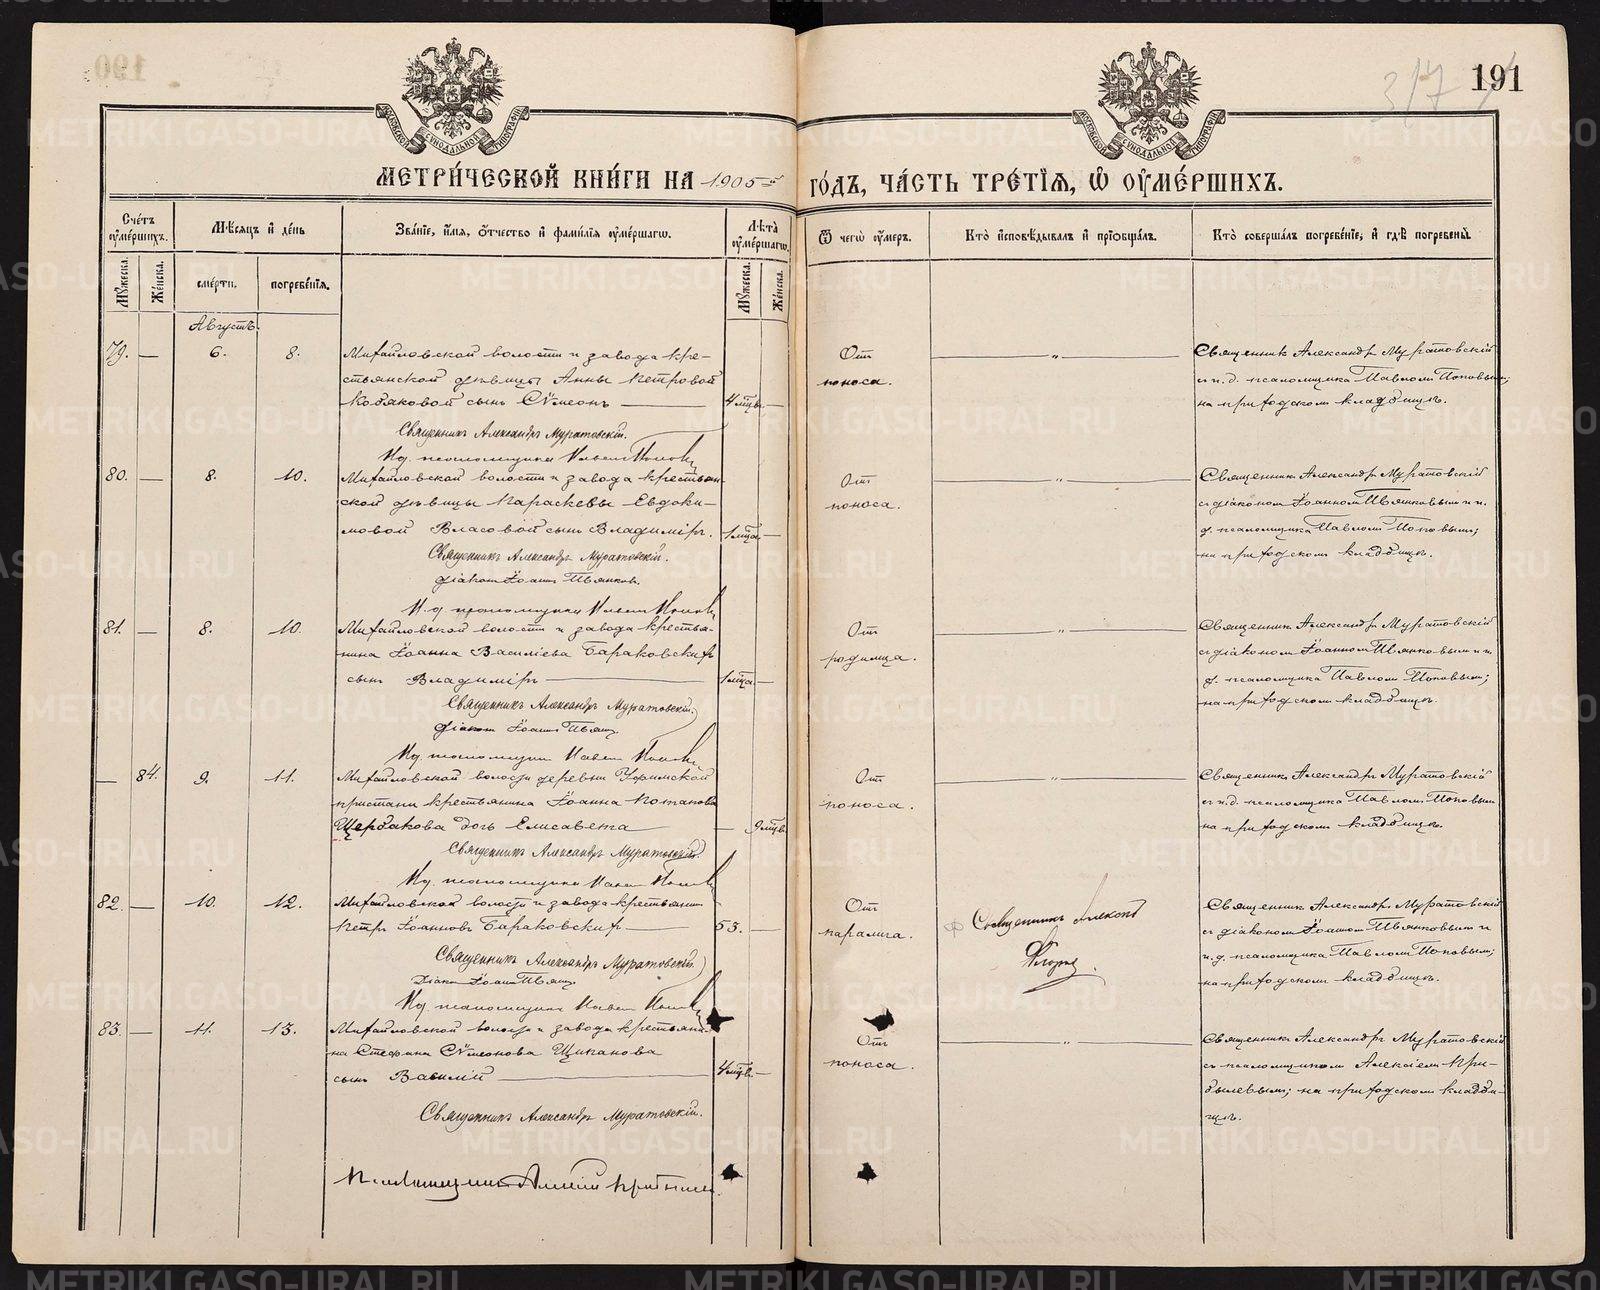 191
МЕТРИЧЕСКОЙ КНИГИ НА 1905 ГОДЪ, ЧАСТЬ ТРЕТІЯ, Ѿ ОУМЕРШИХЪ.
Счетъ оумершихъ.
Мѣсяцъ и день
Званіе, имя, отчество и фамилія оумершагѡ.
Лѣта оумершагѡ.
Ѿ чегѡ оумеръ.
Кто исповѣдывалъ и пріобщалъ.
Кто совершалъ погребеніе, и гдѣ погребены.
Мужеска.
Женска.
смерти.
погребенія.
Мужеска.
Женска.
Августъ.
79. — 6. 8.
Михайловской волости и завода кре-
стьянской дѣвицы Анны Петровой
Кобяковой сынъ Сѵмеонъ
4 мцв.
Отъ
поноса.
Священникъ Александръ Муратовскій
и и. д. псаломщика Павломъ Поповымъ;
на приходскомъ кладбищѣ.
Священникъ Александръ Муратовскій.
И.д. псаломщика Павелъ Поповъ
80. — 8. 10.
Михайловской волости и завода крестьян-
ской дѣвицы Параскевы Евдоки-
мовой Власовой сынъ Владиміръ.
1 мца.
Отъ
поноса.
Священникъ Александръ Муратовскій
съ діакономъ Іоанномъ Пьянковымъ и и.
д. псаломщика Павломъ Поповымъ;
на приходскомъ кладбищѣ.
Священникъ Александръ Муратовскій.
Діаконъ Іоаннъ Пьянковъ.
И.д. псаломщика Павелъ Поповъ
81. — 8. 10.
Михайловской волости и завода крестья-
нина Іоанна Василіева Бараковскихъ
сынъ Владиміръ
1 мца.
Отъ
родимца.
Священникъ Александръ Муратовскій
съ діакономъ Іоанномъ Пьянковымъ и и.
д. псаломщика Павломъ Поповымъ;
на приходскомъ кладбищѣ.
Священникъ Александръ Муратовскій.
Діаконъ Іоаннъ Пьянк
И.д. псаломщика Павелъ Поповъ
— 84. 9. 11.
Михайловской волости деревни Уфимской
пристани крестьянина Іоанна Потапова
Щербакова дочь Елисавета
9 мцв.
Отъ
поноса.
Священникъ Александръ Муратовскій
съ и.д. псаломщика Павломъ Поповымъ
на приходскомъ кладбищѣ.
Священникъ Александръ Муратовскій.
И.д. псаломщика Павелъ Поповъ
82. — 10. 12.
Михайловской волости и завода крестьянинъ
Петръ Іоанновъ Бараковскихъ
53.
Отъ
паралича.
Священникъ Александръ
Священникъ Александръ Муратовскій
съ діакономъ Іоанномъ Пьянковымъ и
и.д. псаломщика Павломъ Поповымъ;
на приходскомъ кладбищѣ.
Священникъ Александръ Муратовскій.
Діаконъ Іоаннъ Пьянк
И.д. псаломщика Павелъ Поповъ
83. — 11. 13.
Михайловской волости и завода крестьяни-
на Стефана Сѵмеонова Щипанова
сынъ Василій
4 мцв.
Отъ
поноса.
Священникъ Александръ Муратовскій
съ псаломщикомъ Алексіемъ При-
былевымъ; на приходскомъ кладби-
щѣ.
Священникъ Александръ Муратовскій.
Псаломщикъ Алексій Прибылевъ.
METRIKI.GASO-URAL.RU